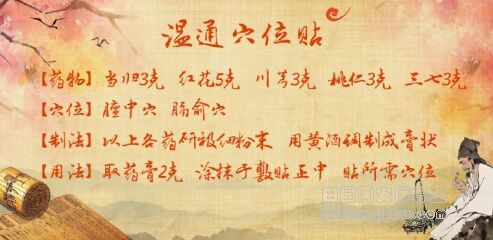 温通穴位贴
【药物】当归3克 红花5克 川芎3克 桃仁3克 三七3克
【穴位】膻中穴 肺俞穴
【制法】以上各药研极细粉末 用黄酒调制成膏状
【用法】取药膏2克 涂抹于敷贴正中 贴所需穴位